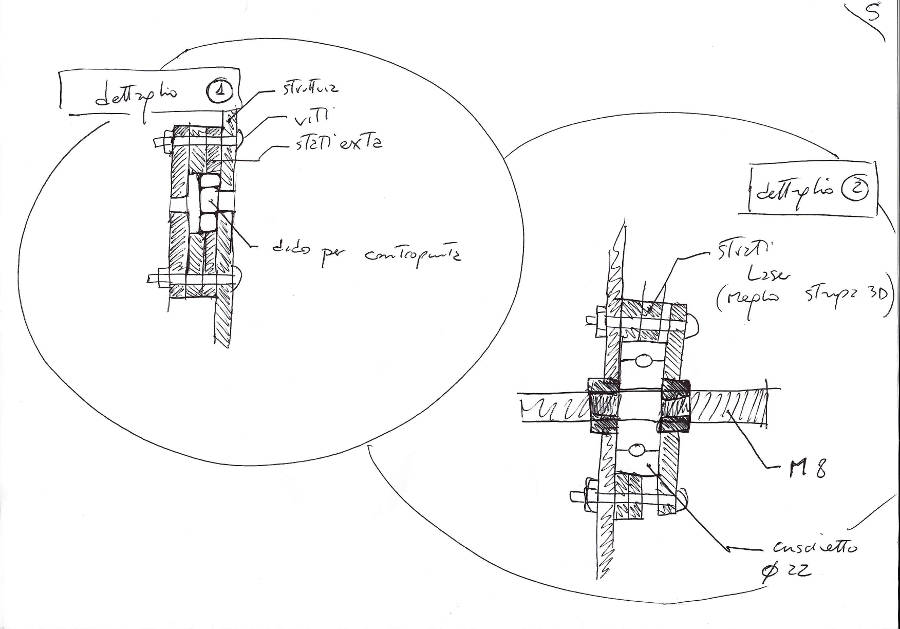 5
dettaglio 1
struttura
viti
strati exta
dado per contropunta
dettaglio 2
strati
Laser
(meglio stampa 3D)
M8
cuscinetto
ϕ 22